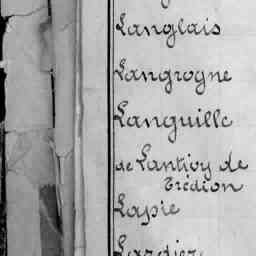 Langlais
Langrogne
Languille
de Lantivy de
Trédion
Lapie
Lardier